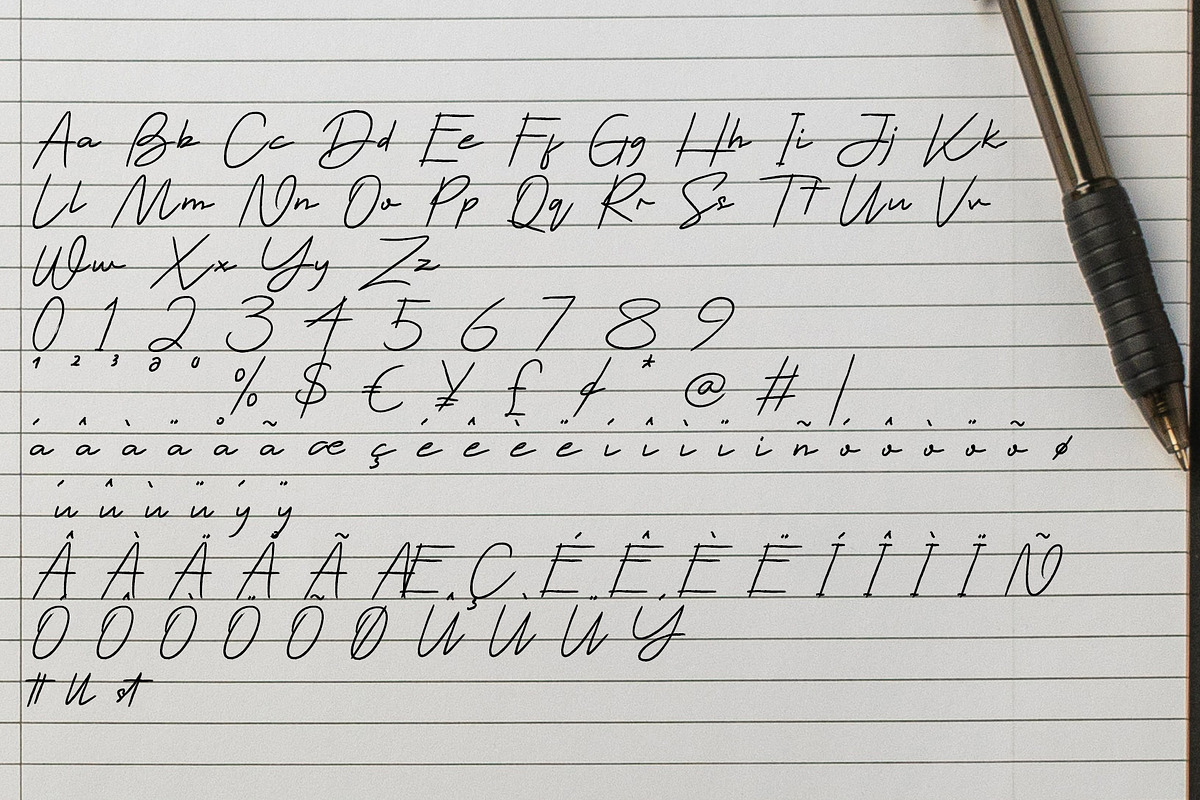 Aa Bb Cc Dd Ee Ff Gg Hh Ii Jj Kk
Ll Mm Nn Oo Pp Qq Rr Ss Tt Uu Vv
Ww Xx Yy Zz
0 1 2 3 4 5 6 7 8 9
¹ ² ³ ª º % $ € ¥ £ ¢ * @ # |
á â à ä å ã æ ç é ê è ë í î ì ï i ñ ó ô ò ö õ ø
ú û ù ü ý ÿ
Â À Ä Å Ã Æ Ç É Ê È Ë Í Î Ì Ï Ñ
Ó Ô Ò Ö Õ Ø Û Ù Ü Ý
tt ll st